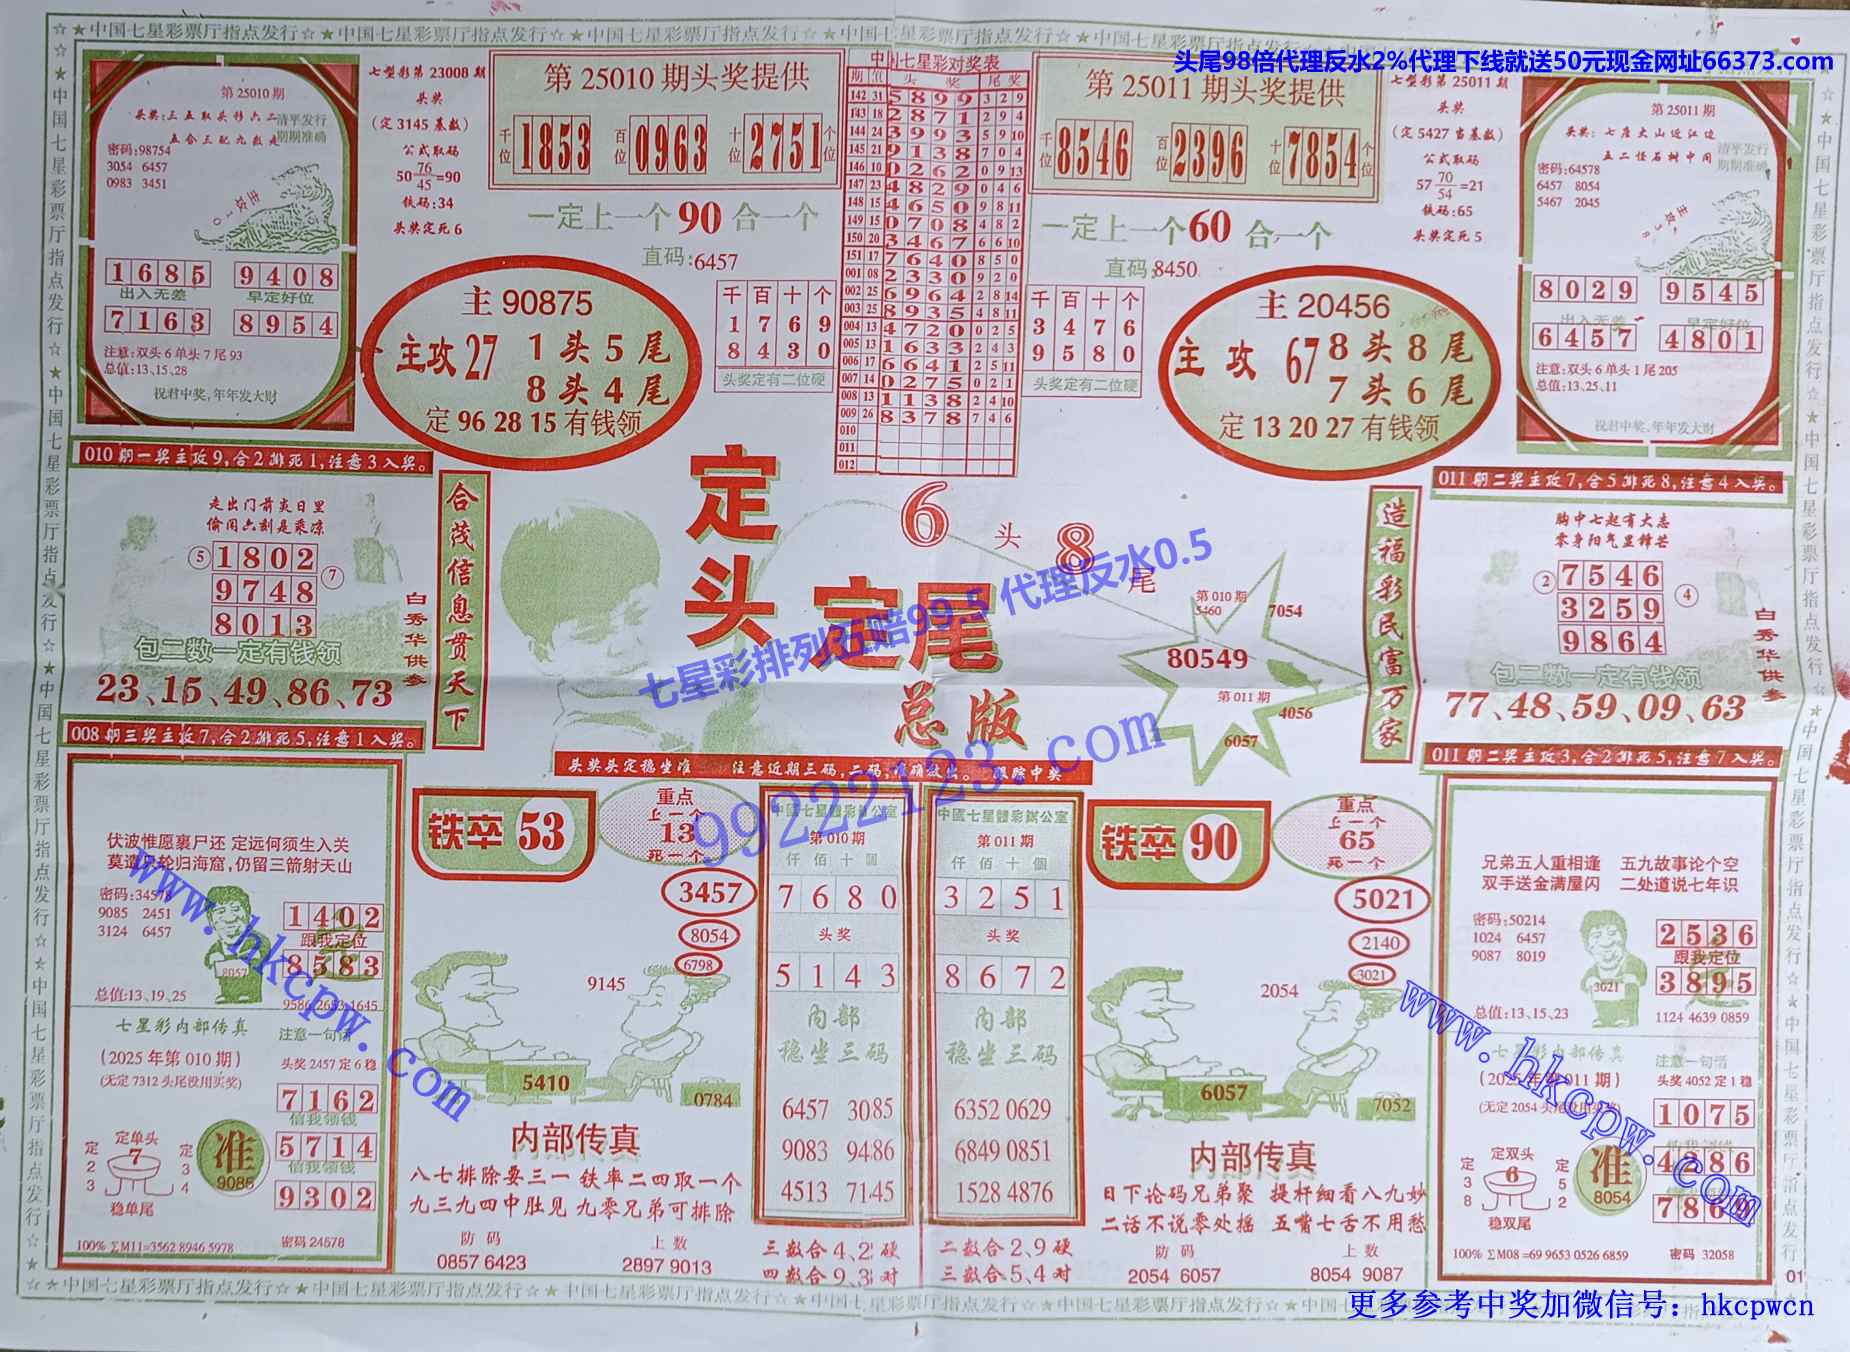 ☆★中国七星彩票厅指点发行☆★中国七星彩票厅指点发行☆★中国七星彩票厅指点发行☆
头尾98倍代理反水2%代理下线就送50元现金网址66373.com
第 25010 期
头奖:三五取头移六二
五合三配九数走
清平发行
期期准确
密码:98754
3054 6457
0983 3451
1685 9408
出入无差 早定好位
7163 8954
注意:双头 6 单头 7 尾 93
总值:13、15、28
祝君中奖,年年发大财
七型彩第 23008 期
头奖
(定 3145 基数)
公式取码
50 76/45 =90
铁码:34
头奖定死 6
第 25010 期头奖提供
千位 1853 百位 0963 十位 2751 个位
一定上一个 90 合一个
直码:6457
主 90875
主攻 27 1 头 5 尾
8 头 4 尾
定 96 28 15 有钱领
千百十个
1 7 6 9
8 4 3 0
头奖定有二位硬
中国七星彩对奖表
期 值 头奖 尾奖
142 31 5899 3 2 9
143 18 2871 2 9 4
144 24 3993 5 9 10
145 21 9138 7 0 4
146 10 0262 0 9 13
147 23 4829 0 4 6
148 15 4650 9 8 11
149 15 0708 4 8 2
150 20 3467 6 6 10
151 17 7640 8 5 0
001 08 2330 9 2 0
002 25 6964 2 8 14
003 25 8935 4 8 11
004 13 4720 0 2 5
005 13 1633 2 4 3
006 17 6641 2 5 11
007 14 0275 0 2 1
008 13 1138 2 4 10
009 26 8378 7 4 6
010
011
012
第 25011 期头奖提供
千位 8546 百位 2396 十位 7854 个位
一定上一个 60 合一个
直码:8450
千百十个
3 4 7 6
9 5 8 0
头奖定有二位硬
主 20456
主攻 67 8 头 8 尾
7 头 6 尾
定 13 20 27 有钱领
七型彩第 25011 期
头奖
(定 5427 当基数)
公式取码
57 70/54 =21
铁码:65
头奖定死 5
第 25011 期
头奖:七座大山近江边
五二怪石树中间
清平发行
期期准确
密码:64578
6457 8054
5467 2045
8029 9545
出入无差 早定好位
6457 4801
注意:双头 6 单头 1 尾 205
总值:13、25、11
祝君中奖,年年发大财
010 期一奖主攻 9,合 2 排死 1,注意 3 入奖。
走出门前炎日里
偷闲六刻是乘凉
⑤ 1802 ⑦
9748
8013
包二数一定有钱领
23、15、49、86、73
白秀华供参
合茂信息贯天下
定头定尾
6 头 8 尾
总版
七星彩排列五赔99.5 代理反水0.5
99222123.com
第 010 期
5460
7054
80549
第 011 期
4056
6057
造福彩民富万家
011 期二奖主攻 7,合 5 排死 8,注意 4 入奖。
胸中七起有大志
零身阳气显锋芒
② 7546 ④
3259
9864
包二数一定有钱领
77、48、59、09、63
白秀华供参
008 期三奖主攻 7,合 2 排死 5,注意 1 入奖。
伏波惟愿裹尸还 定远何须生入关
莫遣只轮归海窟,仍留三箭射天山
9085 2451
3124 6457
8057
1402
跟我定位
8583
总值:13、19、25
9586 2653 1645
七星彩内部传真
(2025 年第 010 期)
(无定 7312 头尾没用买奖)
注意一句话
头奖 2457 定 6 稳
7162
信我领钱
5714
信我领钱
9302
定单头
7
定 2 3
定 3 4
稳单尾
准
9086
100% ∑M11=3562 8946 5978
密码 24578
头奖头定稳坐准
注意近期三码,二码,准确放出。 跟踪中奖
铁卒 53
重点
上一个
13
死一个
3457
8054
6798
9145
5410
0784
内部传真
八七排除要三一 铁率二四取一个
九三九四中肚见 九零兄弟可排除
防码
0857 6423
上数
2897 9013
第 010 期
仟佰十個
7 6 8 0
头奖
5 1 4 3
内部
稳坐三码
6457 3085
9083 9486
4513 7145
三数合 4、2 硬
四数合 9、3 对
第 011 期
仟佰十個
3 2 5 1
头奖
8 6 7 2
内部
稳坐三码
6352 0629
6849 0851
1528 4876
二数合 2、9 硬
三数合 5、4 对
铁卒 90
重点
上一个
65
死一个
5021
2140
3021
2054
6057
7052
内部传真
日下论码兄弟聚 提杆细看八九妙
二话不说零处摇 五嘴七舌不用愁
防码
2054 6057
上数
8054 9087
011 期二奖主攻 3,合 2 排死 5,注意 7 入奖。
兄弟五人重相逢 五九故事论个空
双手送金满屋闪 二处道说七年识
密码:50214
1024 6457
9087 8019
3021
2536
跟我定位
3895
总值:13、15、23
1124 4639 0859
七星彩内部传真
注意一句话
头奖 4052 定 1 稳
1075
4286
7869
定双头
6
定 3 8
定 5 2
稳双尾
准
8054
100% ∑M08 =69 9653 0526 6859
密码 32058
www.hkcpw.com
www.hkcpw.com
01
☆★中国七星彩票厅指点发行☆★中国七星彩票厅指点发行☆★中国七星彩票厅指点发行☆
更多参考中奖加微信号：hkcpwcn